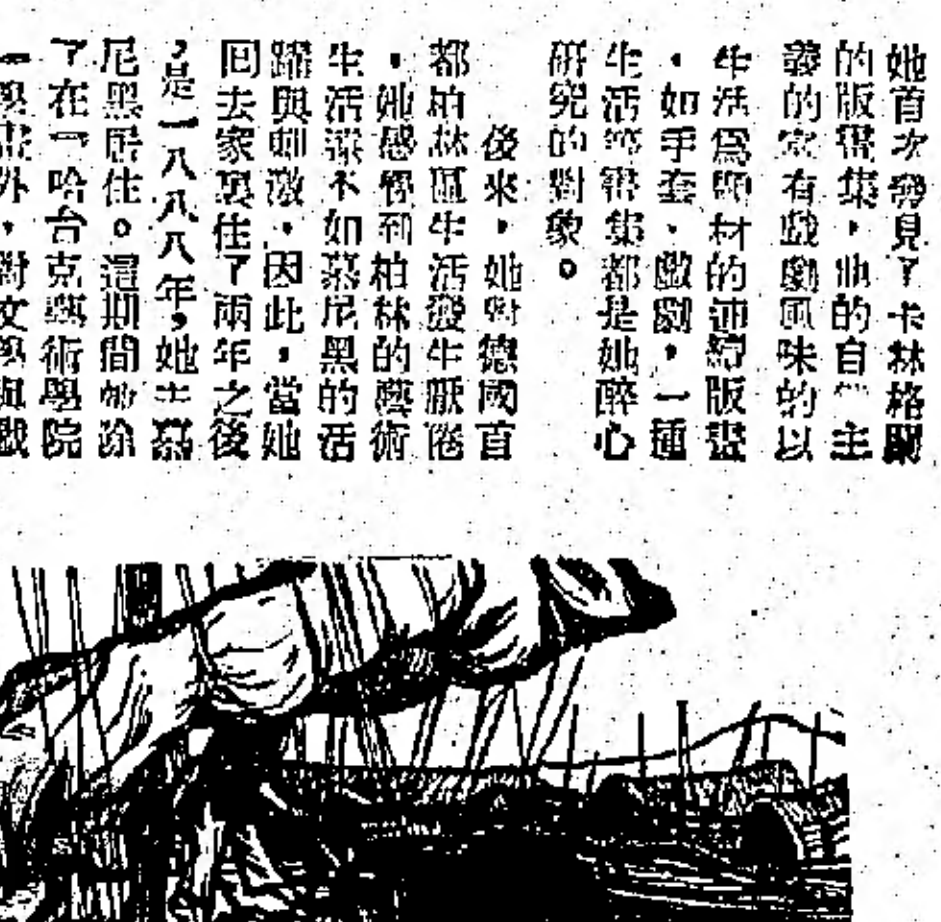 她首次發見了卡林格爾
的版畫集,他的自 主
義的 有戲劇風味的以
生活爲題材的連續版畫
,如手套、戲劇,一種
生活等畫集都是她醉心
研究的對象。
後來,她對德國首
都柏林區生活發生厭倦
,她感覺到柏林的藝術
生活遠不如慕尼黑的活
躍與刺激,因此,當她
囘去家裏住了兩年之後
,是一八八八年,她去慕
尼黑居住。這期間她除
了在「哈台克藝術學院
學 外,對文學與戲